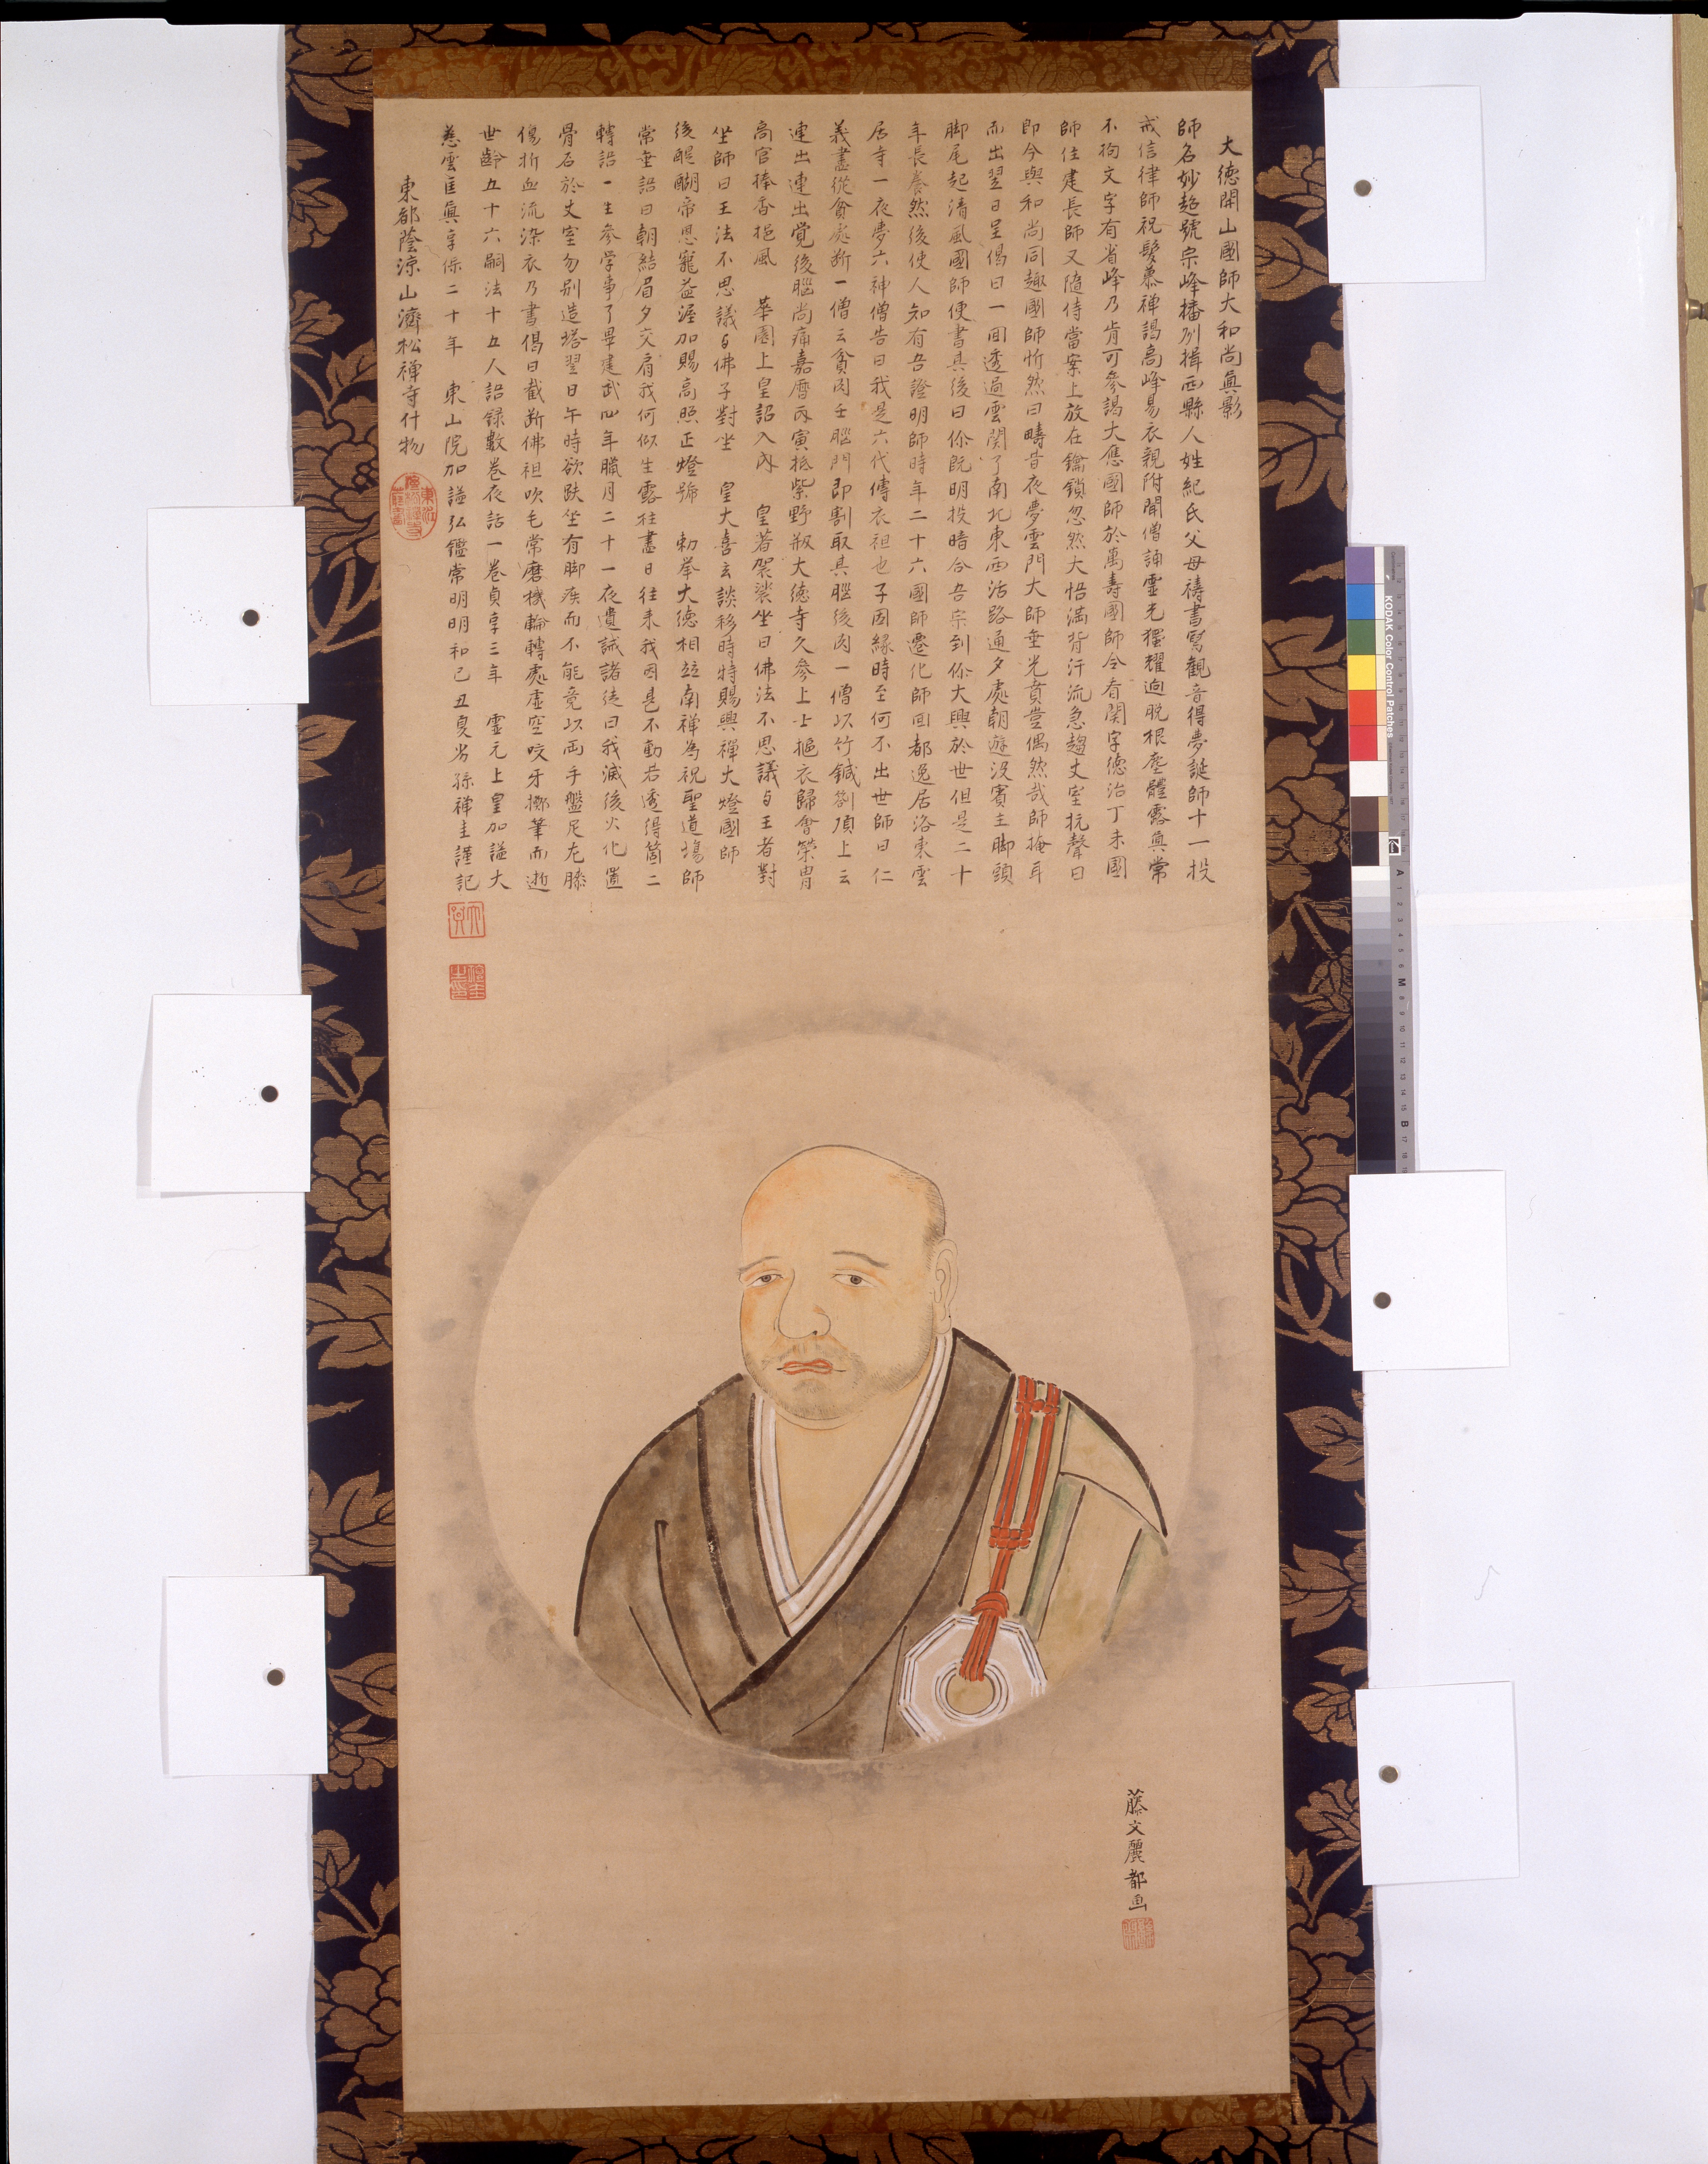 大德開山國師大和尚眞影
師名妙超號宗峰播列揖西縣人姓紀氏父母禱書寫觀音得夢誕師十一投
戒信律師祝髮慕禪謁高峰易衣親附聞僧誦靈光獨耀迥脫根塵體露眞常
不拘文字有省峰乃肯可參謁大應國師於萬壽國師令看関字德治丁未國
師住建長師又隨侍當案上放在鑰鎖忽然大悟滿背汗流急趨丈室抗聲曰
即今與和尚同趣國師忻然曰疇昔夜夢雲門大師垂光賁豈偶然哉師掩耳
而出翌日呈偈曰一回透過雲関了南北東西活路通夕處朝遊没賓主脚頭
脚尾起清風國師便書其後曰你既明投暗合吾宗到你大興於世但是二十
年長養然後使人知有吾證明師時年二十六國師遷化師回都逸居洛東雲
居寺一夜夢六神僧告曰我是六代傳衣祖也子因緣時至何不出世師曰仁
義盡從貧處断一僧云貧因在腦門即割取其腦後肉一僧以竹鍼劄頂上云
連出連出覺後腦尚痛嘉曆丙寅抵紫野剏大德寺久參上士摳衣歸會榮胄
高官捧香挹風 華園上皇詔入內 皇著袈裟坐曰佛法不思議与王者對
坐師曰王法不思議与佛子對坐 皇大喜玄談移時特賜興禪大燈國師
後醍醐帝恩寵益渥加賜高照正燈號 勅举大德相竝南禪為祝聖道塲師
常垂語曰朝結眉夕交肩我何似生露柱盡日往来我因甚不動若透得箇二
轉語一生參学事了畢建武四年臘月二十一夜遺誡諸徒曰我滅後火化置
骨石於丈室勿别造塔翌日午時欲趺坐有脚疾而不能竟以両手盤尼左膝
傷折血流染衣乃書偈曰截断佛祖吹毛常磨機輪轉處虛空咬牙擲筆而逝
世齡五十六嗣法十五人語録數巻夜話一巻貞享三年 靈元上皇加謚大
慈雲匡眞享保二十年 東山院加謚弘鑑常明明和己丑夏劣孫禪圭謹記
東都蔭涼山濟松禪寺什物
藤文麗都画
KODAK Color Control Patches